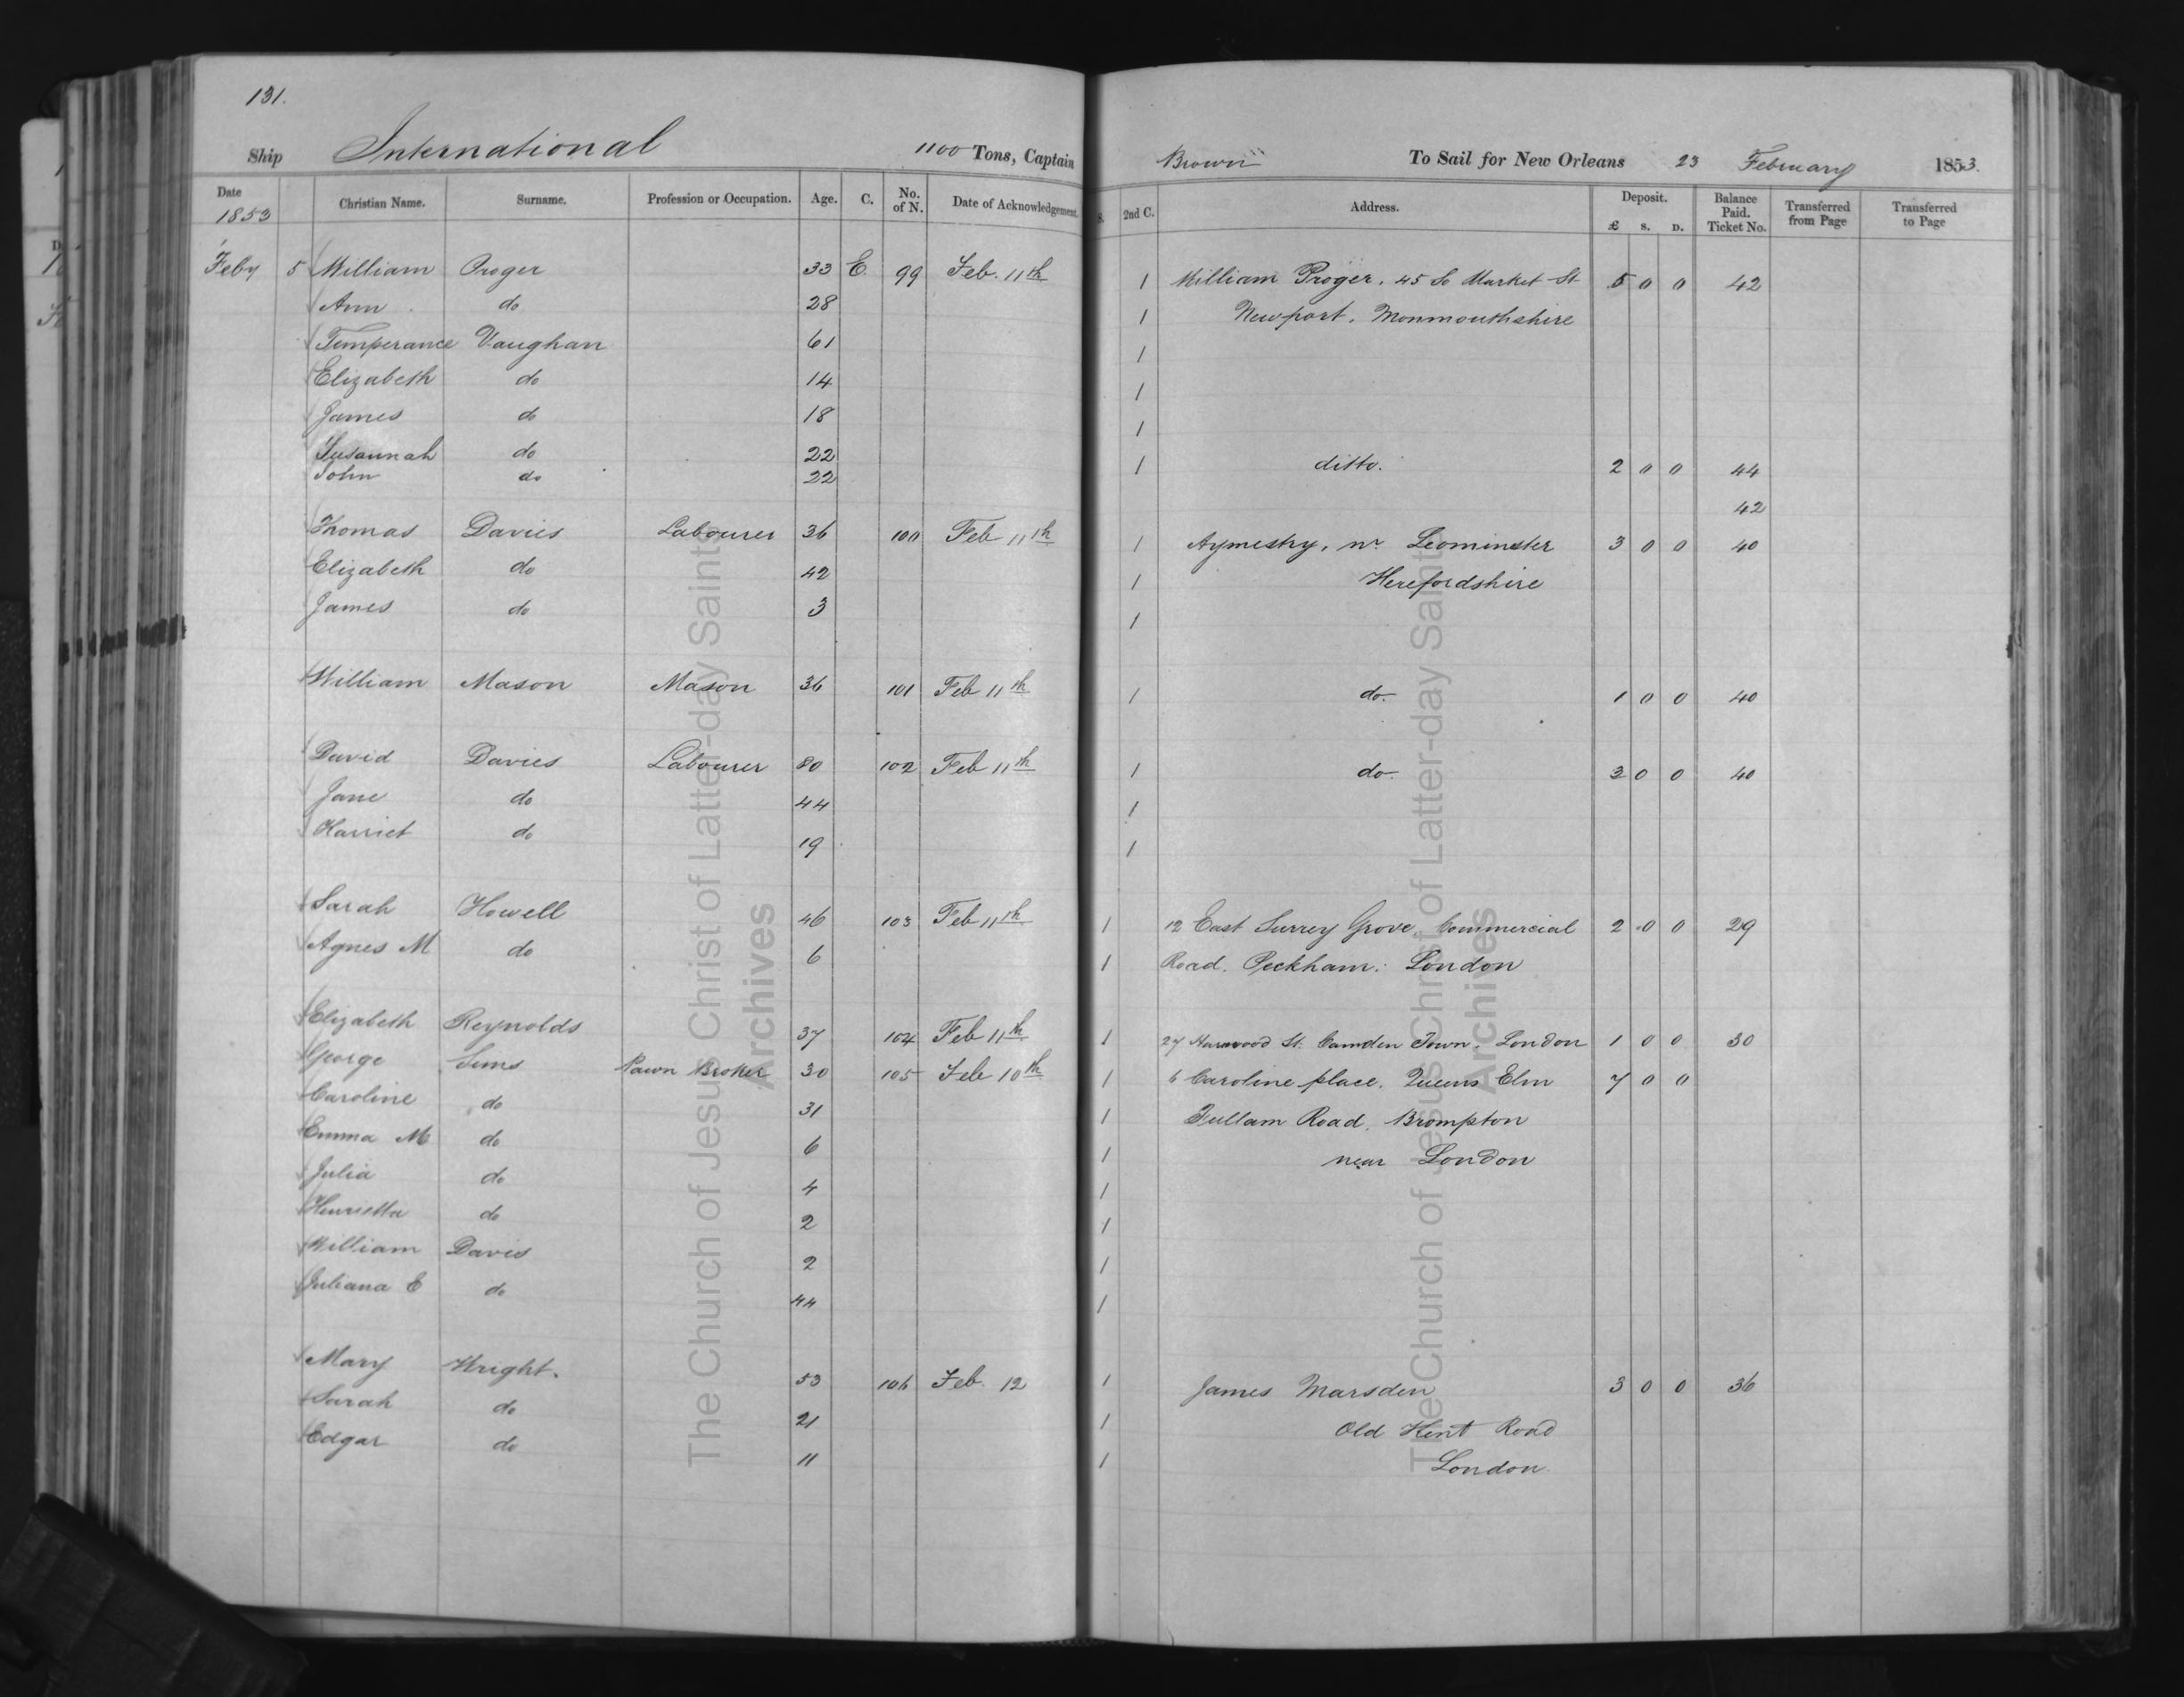 131.
Ship International 1100 Tons, Captain Brown To Sail for New Orleans 23 February 1853.
Date 1853 Christian Name. Surname. Profession or Occupation. Age. C. No. of N. Date of Acknowledgement. 2nd C. Address. Deposit. £ S. D. Balance Paid. Ticket No. Transferred from Page Transferred to Page
Feby 5 William Proger 33 E. 99 Feb. 11th 1 William Proger, 45 So Market St 5 0 0 42
Ann do 28 1 Newport, Monmouthshire
Temperance Vaughan 61 1
Elizabeth do 14 1
James do 18 1
Susannah do 22 1 ditto. 2 0 0 44
John do 22
42
Thomas Davies Labourer 36 100 Feb 11th 1 Aymestry, nr Leominster 3 0 0 40
Elizabeth do 42 1 Herefordshire
James do 3 1
William Mason Mason 36 101 Feb 11th 1 do. 1 0 0 40
David Davies Labourer 80 102 Feb 11th 1 do. 3 0 0 40
Jane do 44 1
Harriet do 19 1
Sarah Howell 46 103 Feb 11th 1 12 East Surrey Grove, Commercial 2 0 0 29
Agnes M do 6 1 Road. Peckham. London
Elizabeth Reynolds 37 104 Feb 11th 1 27 Harwood St. Camden Town. London 1 0 0 30
George Sims Pawn Broker 30 105 Feb 10th 1 6 Caroline place. Queens Elm 7 0 0
Caroline do 31 1 Fullam Road, Brompton
Emma M do 6 1 near London
Julia do 4 1
Henrietta do 2 1
William Davis 2 1
Juliana E do 44 1
Mary Wright. 53 106 Feb. 12 1 James Marsden 3 0 0 36
Sarah do 21 1 Old Kent Road
Edgar do 11 1 London.
The Church of Jesus Christ of Latter-day Saints
Archives
The Church of Jesus Christ of Latter-day Saints
Archives